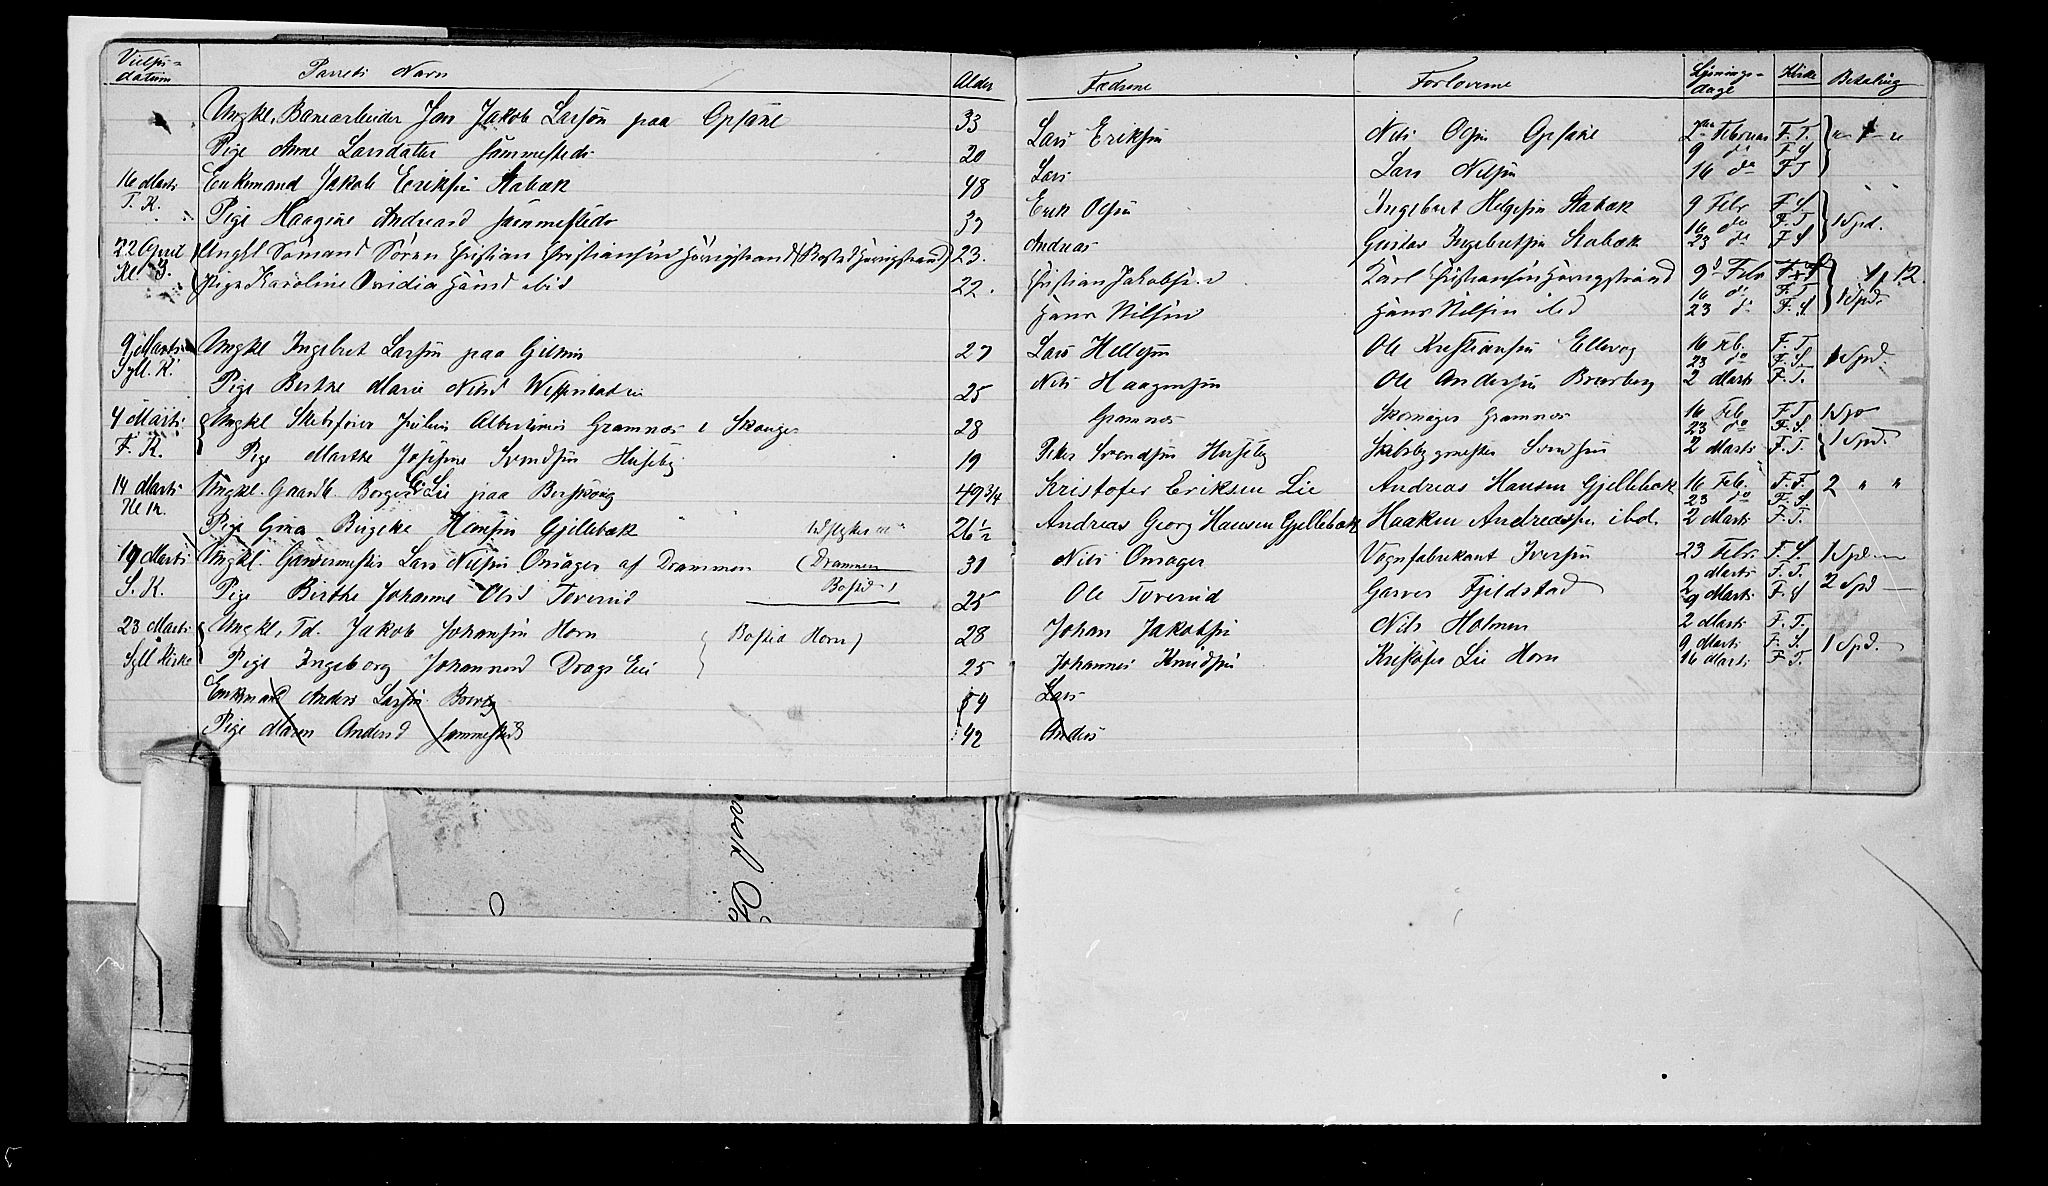 Vielses=datum Parrets Navn Alder Fædrene Forloverne Lysnings-dage Kirke Betaling
Ungkl. Banearbeider Jan Jakob Larsøn paa Opsahl 33 Lars Eriksen Nils Olsen Opsahl 2den Februar F. T.
Pige Anne Larsdatter sammesteds 20 Lars Lars Nilsen 9 do F S 16 do F T
16 Marts T. K. Enkemand Jakob Eriksen Stabæk 48 Erik Olsen Ingebret Helgesen Stabæk 9 Febr F. S.
Pige Haagine Andreasd sammesteds 37 Andreas Gustav Ingebretsen Stabæk 16 do F. T. 23 do F S 1 Spd.
22 April Ungkl Sømand Søren Christian Christiansen 23. Christian Jakobsen Karl Christiansen 9 Feb
Pige Karoline Ovidia Hansd ibid 22. Hans Nilsen Hans Nilsen ibid 16 do F. T. 23 do F. S 1 Spd.
9 Marts Syll. K. Ungkl Ingebret Larsen paa 27 Lars Hellesen Ole Kristiansen 16 Feb. F. T.
Pige Berthe Marie Nilsd 25 Nils Haagensen Ole Andersen 23 do F. S. 2 Marts F. T. 1 Spd.
4 Marts F. K. Ungkl Skibsfører Julius Gramnæs 28 Gramnæs Skomager Gramnæs 16 Feb F. T.
Pige Marthe Josefine Svendsen Huseby 19 Peter Svendsen Huseby Skibsbygmester Svendsen 23 do F. S. 2 Marts F. T. 1 Spd.
14 Marts Ungkl. Gaardb. Borger Lie paa 49 3/4 Kristofer Eriksen Lie Andreas Hansen Gjellebæk 16 Feb. F. T. 2 " "
Pige Gina Hansen Gjellebæk 26 1/2 Andreas Georg Hansen Gjellebæk Haaken Andreassen ibd. 23 do F. S 2 Marts F. T.
19 Marts S. K. Ungkl. Garvermester Lars Nilsen Onsager af Drammen (Drammen 31 Nils Onsager Vognfabrikant Iversen 23 Febr. F. S. 1 Spd
Pige Birthe Johanne Olsd Tveruid Bosted 25 Ole Tverud Garver Fjeldstad 2 Marts F. T. 9 Marts F. S 2 Spd
23 Marts Syll Kirke Ungkl. Jakob Johansen Horn (Bosted Horn) 28 Johan Jakobsen Nils Holmen 2 Marts F. T.
Pige Ingeborg Johannesd Drags Eie 25 Johannes Knudsen Kristofer Lie Horn 9 Marts F. S. 16 Marts F. T. 1 Spd.
Enkemand Anders Larsen 54 Lars
Pige Maren Andersd sammesteds 42 Anders